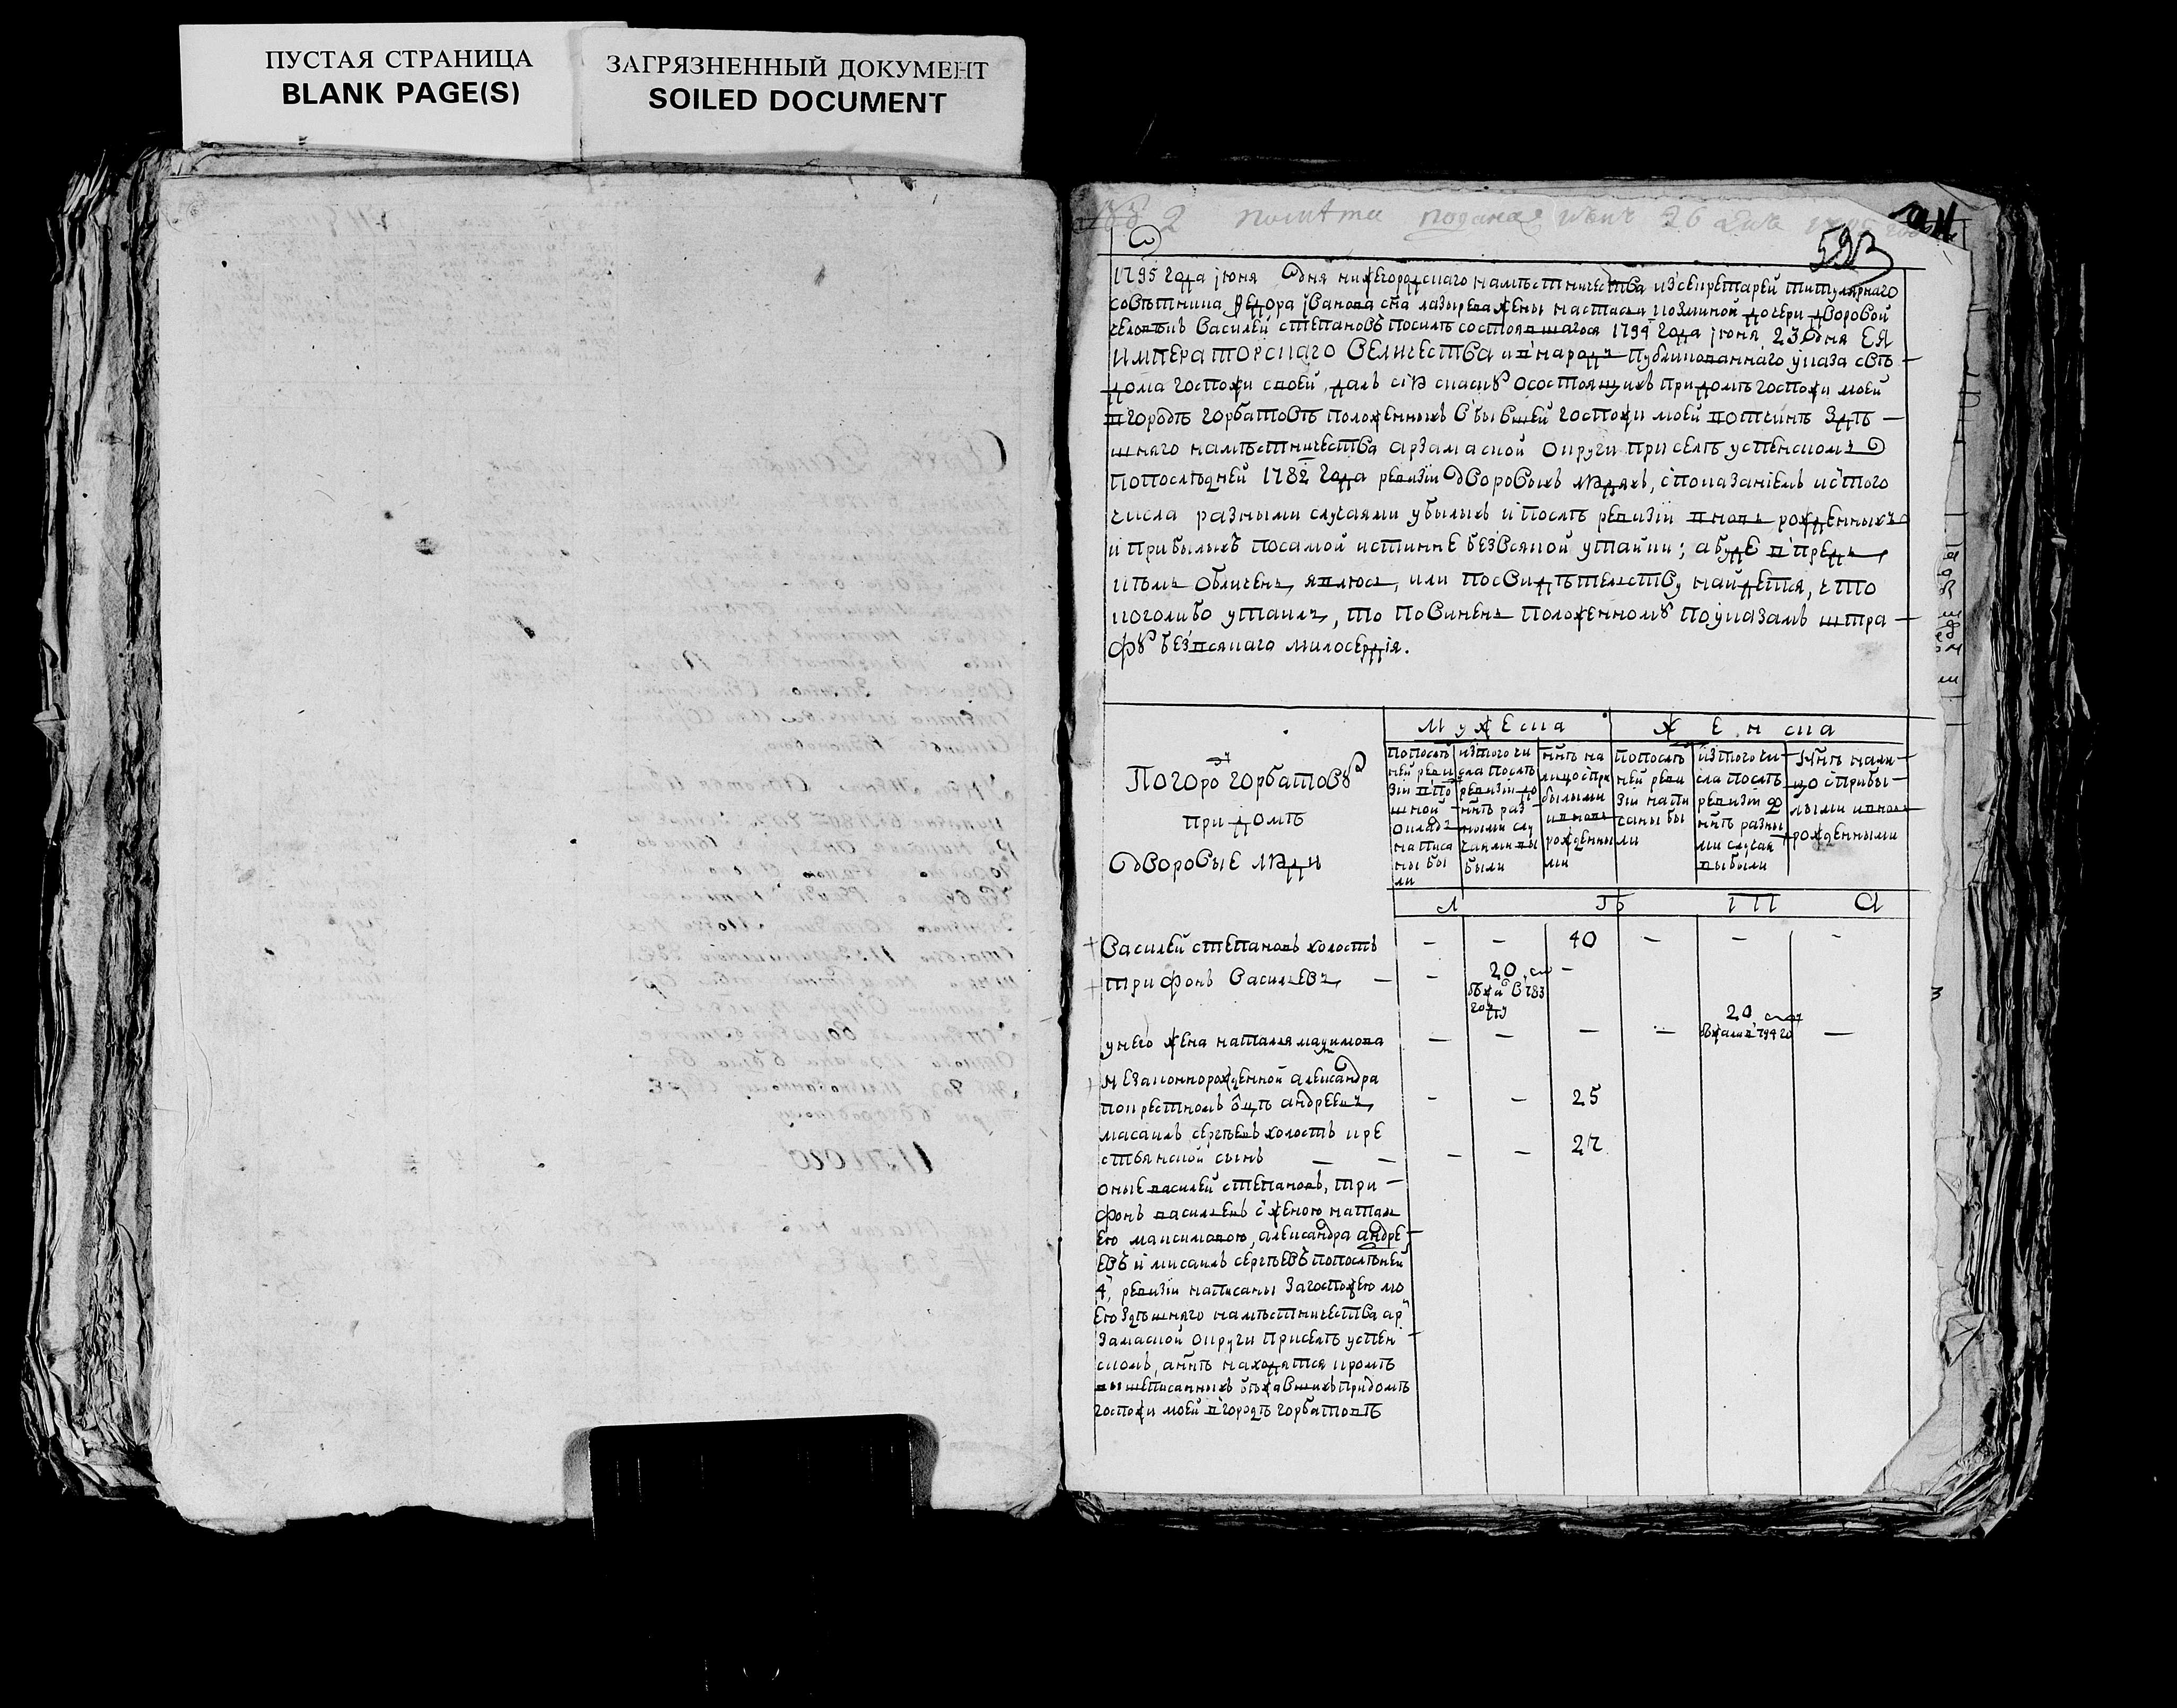 ПУСТАЯ СТРАНИЦА
BLANK PAGE(S)
ЗАГРЯЗНЕННЫЙ ДОКУМЕНТ
SOILED DOCUMENT
593
1795 года июня дня нижегородскаго намѣстничества изсекретарей титулярнаго
совѣтника Федора Иванова сна жены настасьи козминой дочери дворовой
человѣкъ Василей степановъ посилѣ состоявшагося 1794 года июня 23 дня ЕЯ
ИМПЕРАТОРСКАГО ВЕЛИЧЕСТВА и внародъ публикованнаго указа свѣ
дома госпожи своей, далъ сию скаску осостоящихъ придомѣ госпожи моей
вгородѣ горбатовѣ положенныхъ вбывшей госпожи моей вотчинѣ здѣ
шняго намѣстничества арзамаской округи приселѣ успенскомъ
попослѣдней 1782 года ревизии дворовыхъ людяхъ, споказаниемъ исътого
числа разными случаями убылыхъ и послѣ ревизии вновь рожденныхъ
и прибылыхъ посамой истиннѣ безвсякой утайки; абуде впредь
вътомъ обличенъ явлюсь, или посвидѣтельству найдется, что
коголибо утаилъ, то повиненъ положенному поуказамъ штра
фу безвсякаго милосердия.
Погоро горбатову
при домѣ
дворовые люди
Мужеска
Женска
попослѣ
ней реви
зии вподу
шной
окладъ
написа
ны бы
ли
изтого чи
сла послѣ
ревизии до
ннѣ раз
ными слу
чаями вы
были
ннѣ на
лицо спри
былыми
ивновь
рожденны
ми
попослѣ
ней реви
зии напи
саны бы
ли
изтого чи
сла послѣ
ревизии до
ннѣ разны
ми случаи
выбыли
ннѣ нали
цо сприбы
лыми ивновь
рожденными
Василей степановъ холостъ - - 40 - - -
трифонъ Васильевъ - - 20
бежи в 783
году
унего жена наталья максимова - - - - 20
бежала в 794 го -
незаконнорожденной александра
покрестномъ оцѣ андреевъ - - 25
масаилъ сергѣевъ холостъ кре
стьянской сынъ - - 27
оные василей степановъ, три
фонъ васильевъ сженою натал
ею максимовою, александра андре
евъ и мисаилъ сергѣевъ попослѣней
4, ревизии написаны загоспожею мо
ею здѣшняго намѣстничества ар
замаской округи приселѣ успен
скомъ, аннѣ находятся кромѣ
вышеписанныхъ бѣжавшихъ придомѣ
госпожи моей вгородѣ горбатовѣ